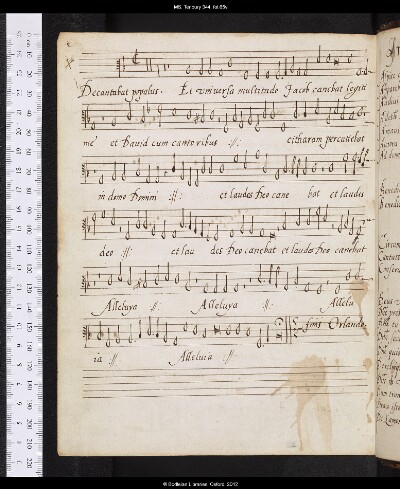 MS. Tenbury 344, fol.65v
Decantabat populus. Et universa multitudo Jacob canebat legiti
me et David cum cantoribus :||: citharam percutiebat
in domo Domini :||: et laudes Deo cane bat et laudes
deo :||: et lau des Deo canebat et laudes Deo canebat
Alleluya :||: Alleluya :||: Allelu
finis Orlando
ia :||: Alleluia :||:
© Bodleian Libraries, Oxford, 2012